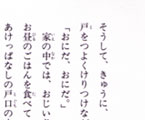 そうして、きゅうに、
戸をつよくけりつけな
「おにだ、おにだ。」
家の中では、おじい
お昼のごはんを食べて
あけっぱなしの戸口の